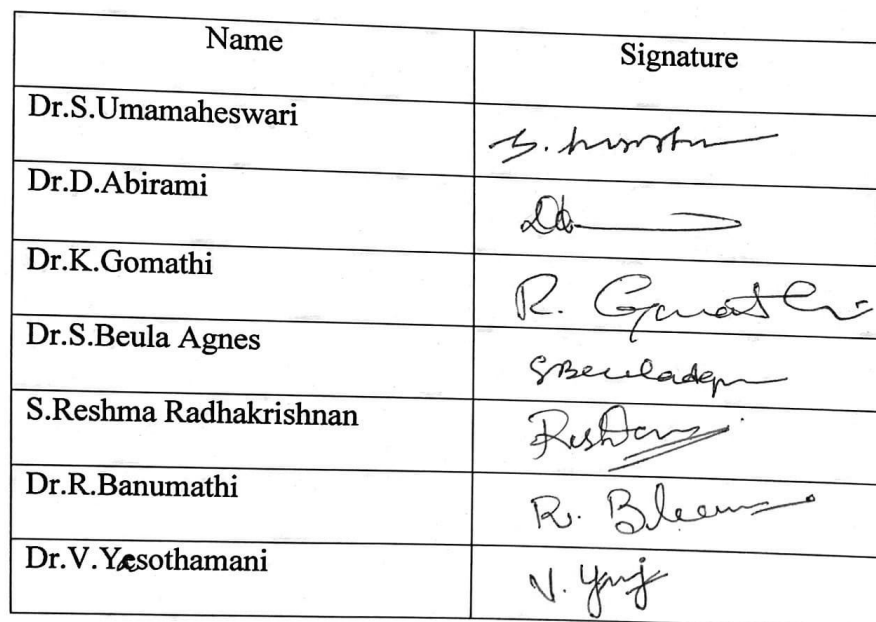 Name Signature
Dr.S.Umamaheswari
Dr.D.Abirami
Dr.K.Gomathi R. Gomathi
Dr.S.Beula Agnes
S.Reshma Radhakrishnan
Dr.R.Banumathi R.
Dr.V.Yasothamani V.